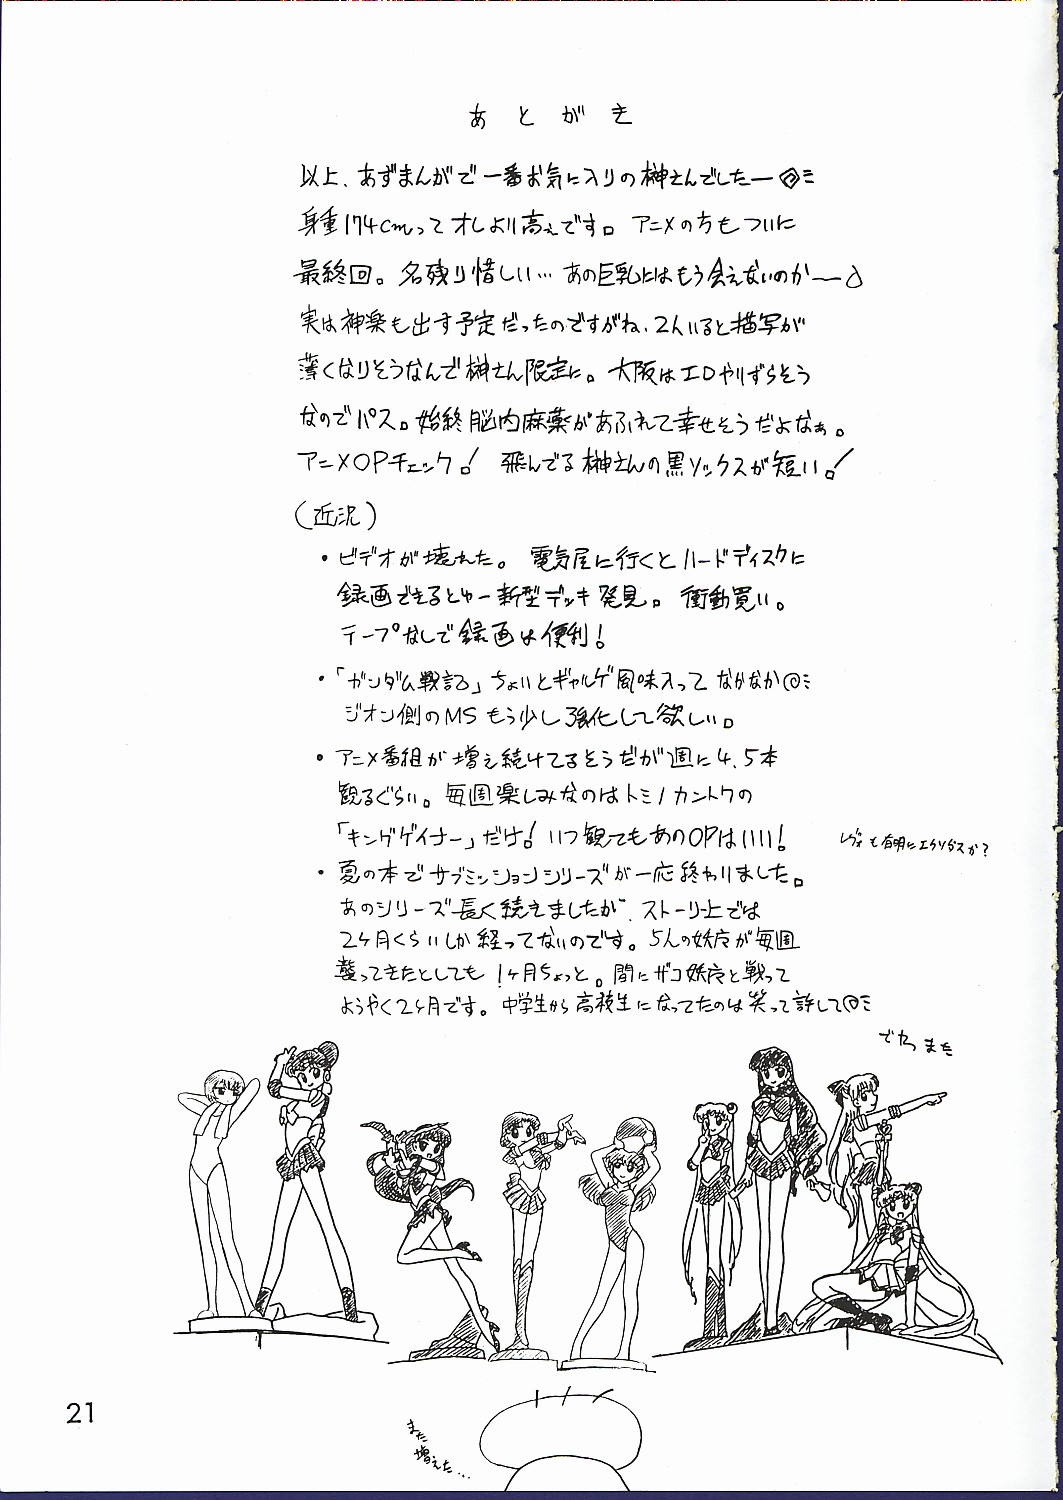 あとがき
以上、あずまんがで一番お気に入りの榊さんでしたー
身重174cmってオレより高ぇです。アニメの方もついに
最終回。名残り惜しい…あの巨乳にはもう会えないのか～
実は神楽も出す予定だったのですがね、2人いると描写が
薄くなりそうなんで榊さん限定に。大阪はエロやりずらそう
なのでパス。始終脳内麻薬があふれて幸せそうだよなぁ。
アニメOPチェック！飛んでる榊さんの黒ソックスが短い！
（近況）
・ビデオが壊れた。電気屋に行くとハードディスクに
録画できるとゆー新型デッキ発見。衝動買い。
テープなしで録画は便利！
・「ガンダム戦記」ちょいとギャルゲ風味入ってなかなか
ジオン側のMSもう少し強化して欲しい。
・アニメ番組が増え続けてるそうだが週に4、5本
観るぐらい。毎週楽しみなのはトミノカントクの
「キングゲイナー」だけ！いつ観てもあのOPはいい！
レヴォも有明にエクソダスか？
・夏の本でサブミッションシリーズが一応終わりました。
あのシリーズ長く続きましたが、ストーリー上では
2ヶ月くらいしか経ってないのです。5人の妖魔が毎週
襲ってきたとしても1ヶ月ちょっと。間にザコ妖魔と戦って
ようやく2ヶ月です。中学生から高校生になってたのは笑って許して
でわっまた
また
増えた…
21